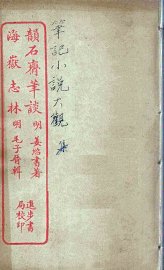 筆記小說大觀
韻石齋筆談 明 姜紹書著
海嶽志林 明 毛子晉輯
進步書
局校印